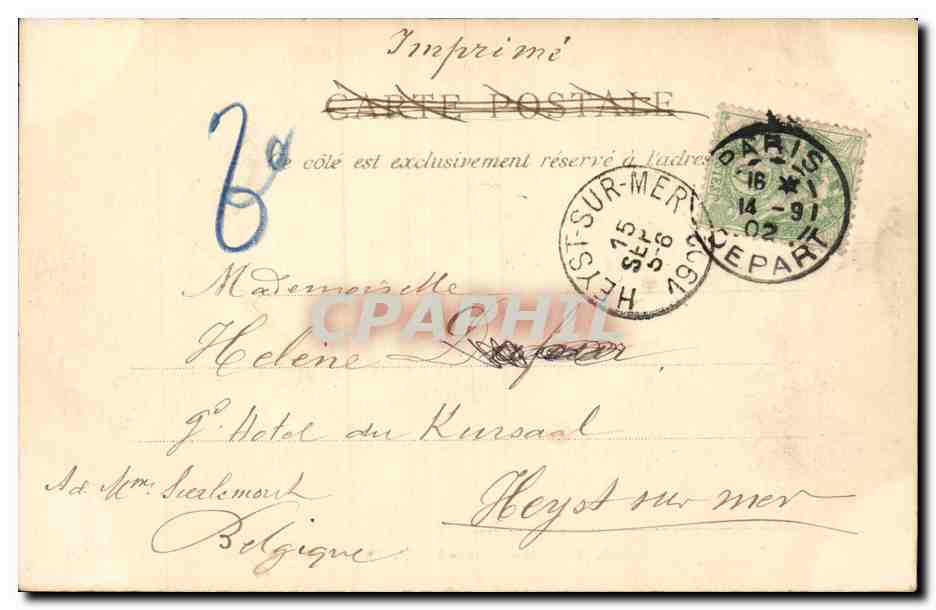 Imprimé
CARTE POSTALE
Ce côté est exclusivement réservé à l'adres
PARIS
16
14 - 9
02
DEPART
HEYST-SUR-MER
15
SEPT
5-6
1902
Mademoiselle
CPAPHIL
Helène
gd Hotel du Kursaal
Ad. Mme
Heyst sur mer
Belgique